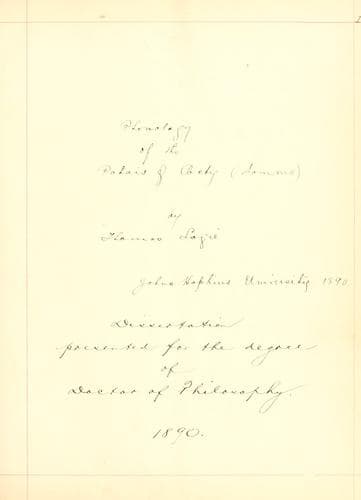 Phonology
of the
Patois of Cachy (Somme)
by
Thomas Logie
Johns Hopkins University 1890
Dissertation
presented for the degree
of
Doctor of Philosophy.
1890.